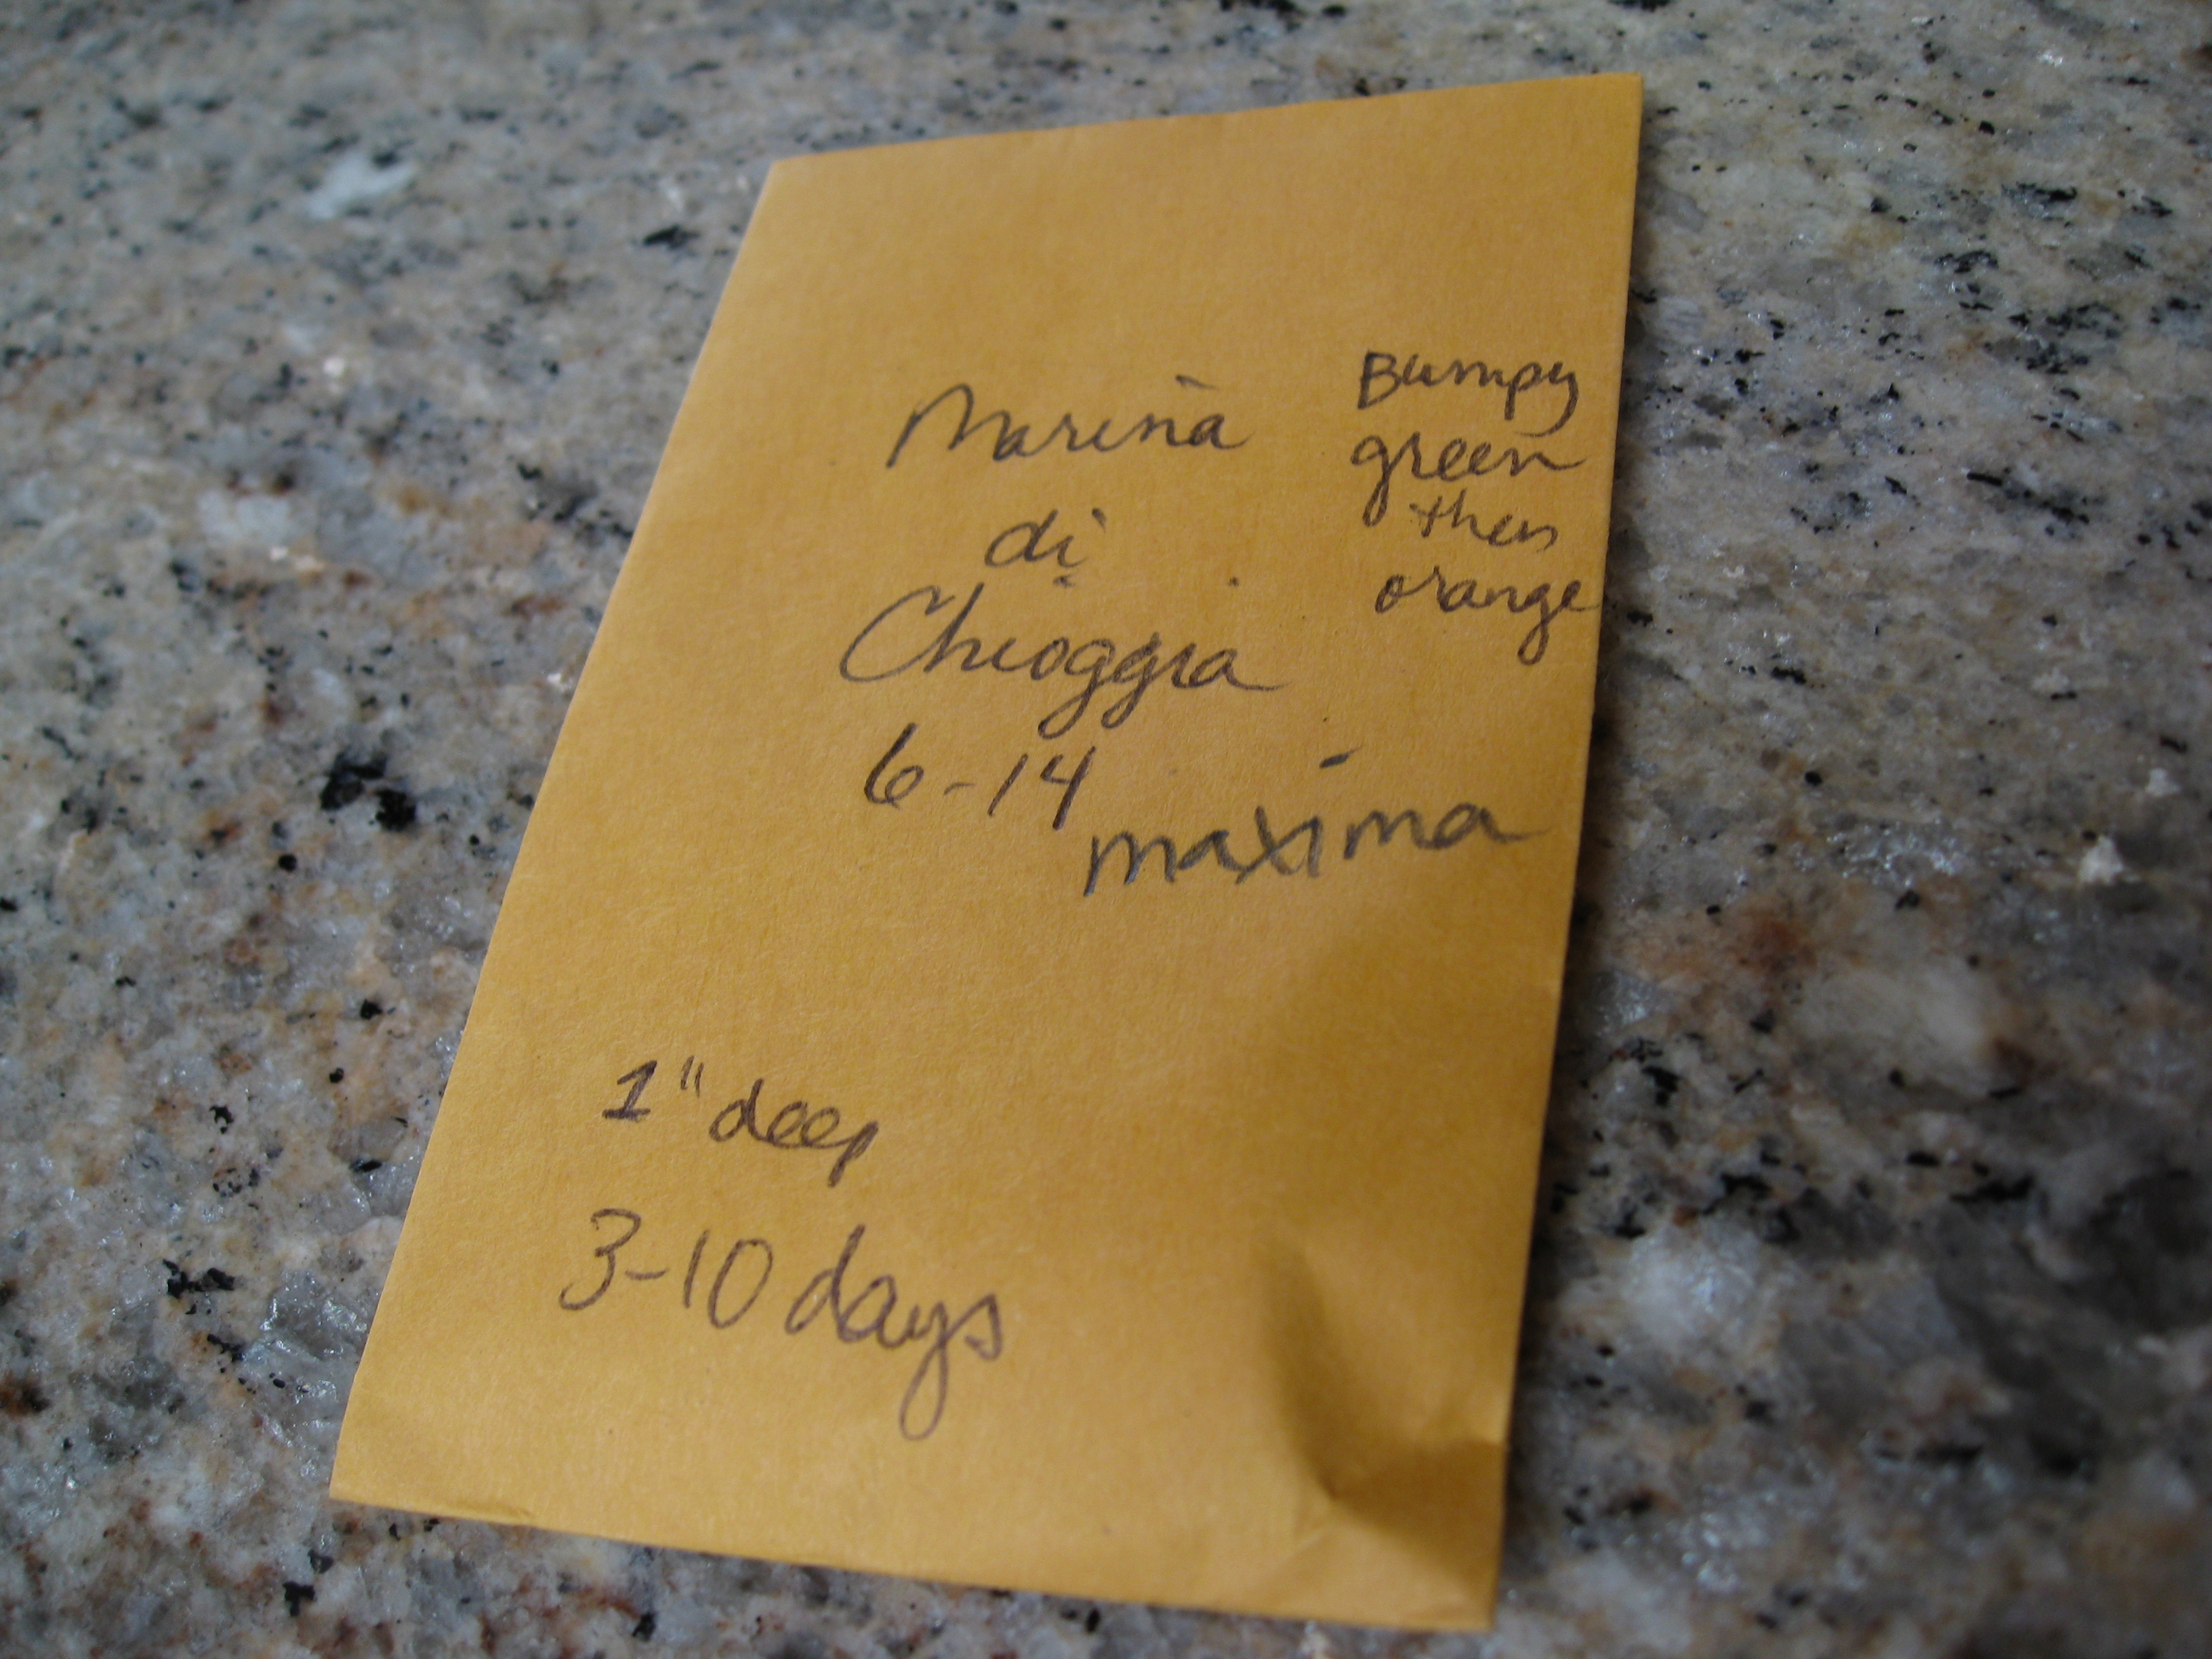 Marina
di
Chioggia
6-14
maxima
Bumpy
green
then
orange
1" deep
3-10 days